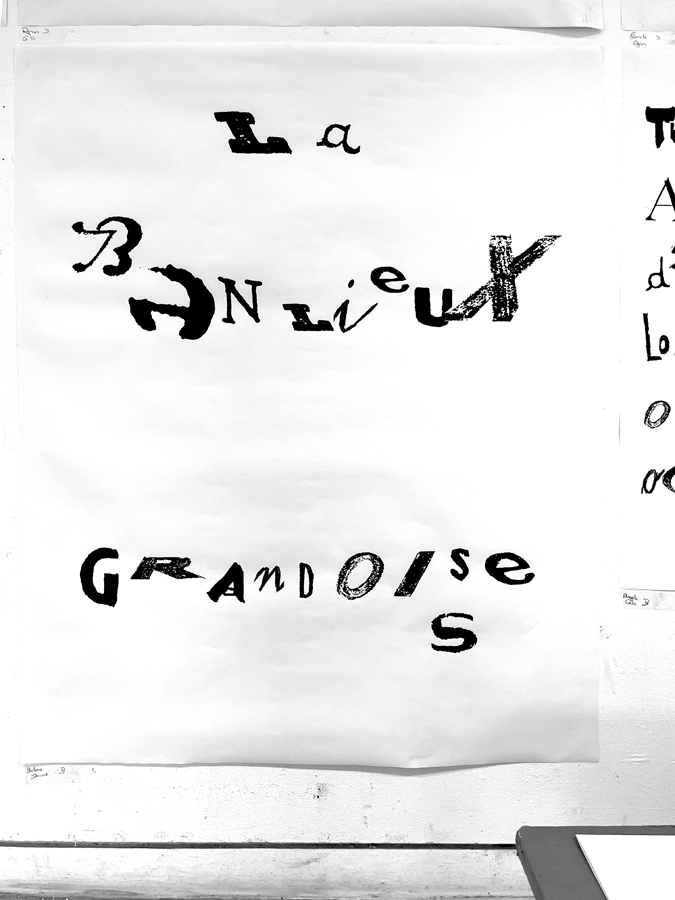 La
BANLieUX
GRANDOISe
S
Tu
A
d
Lo
o